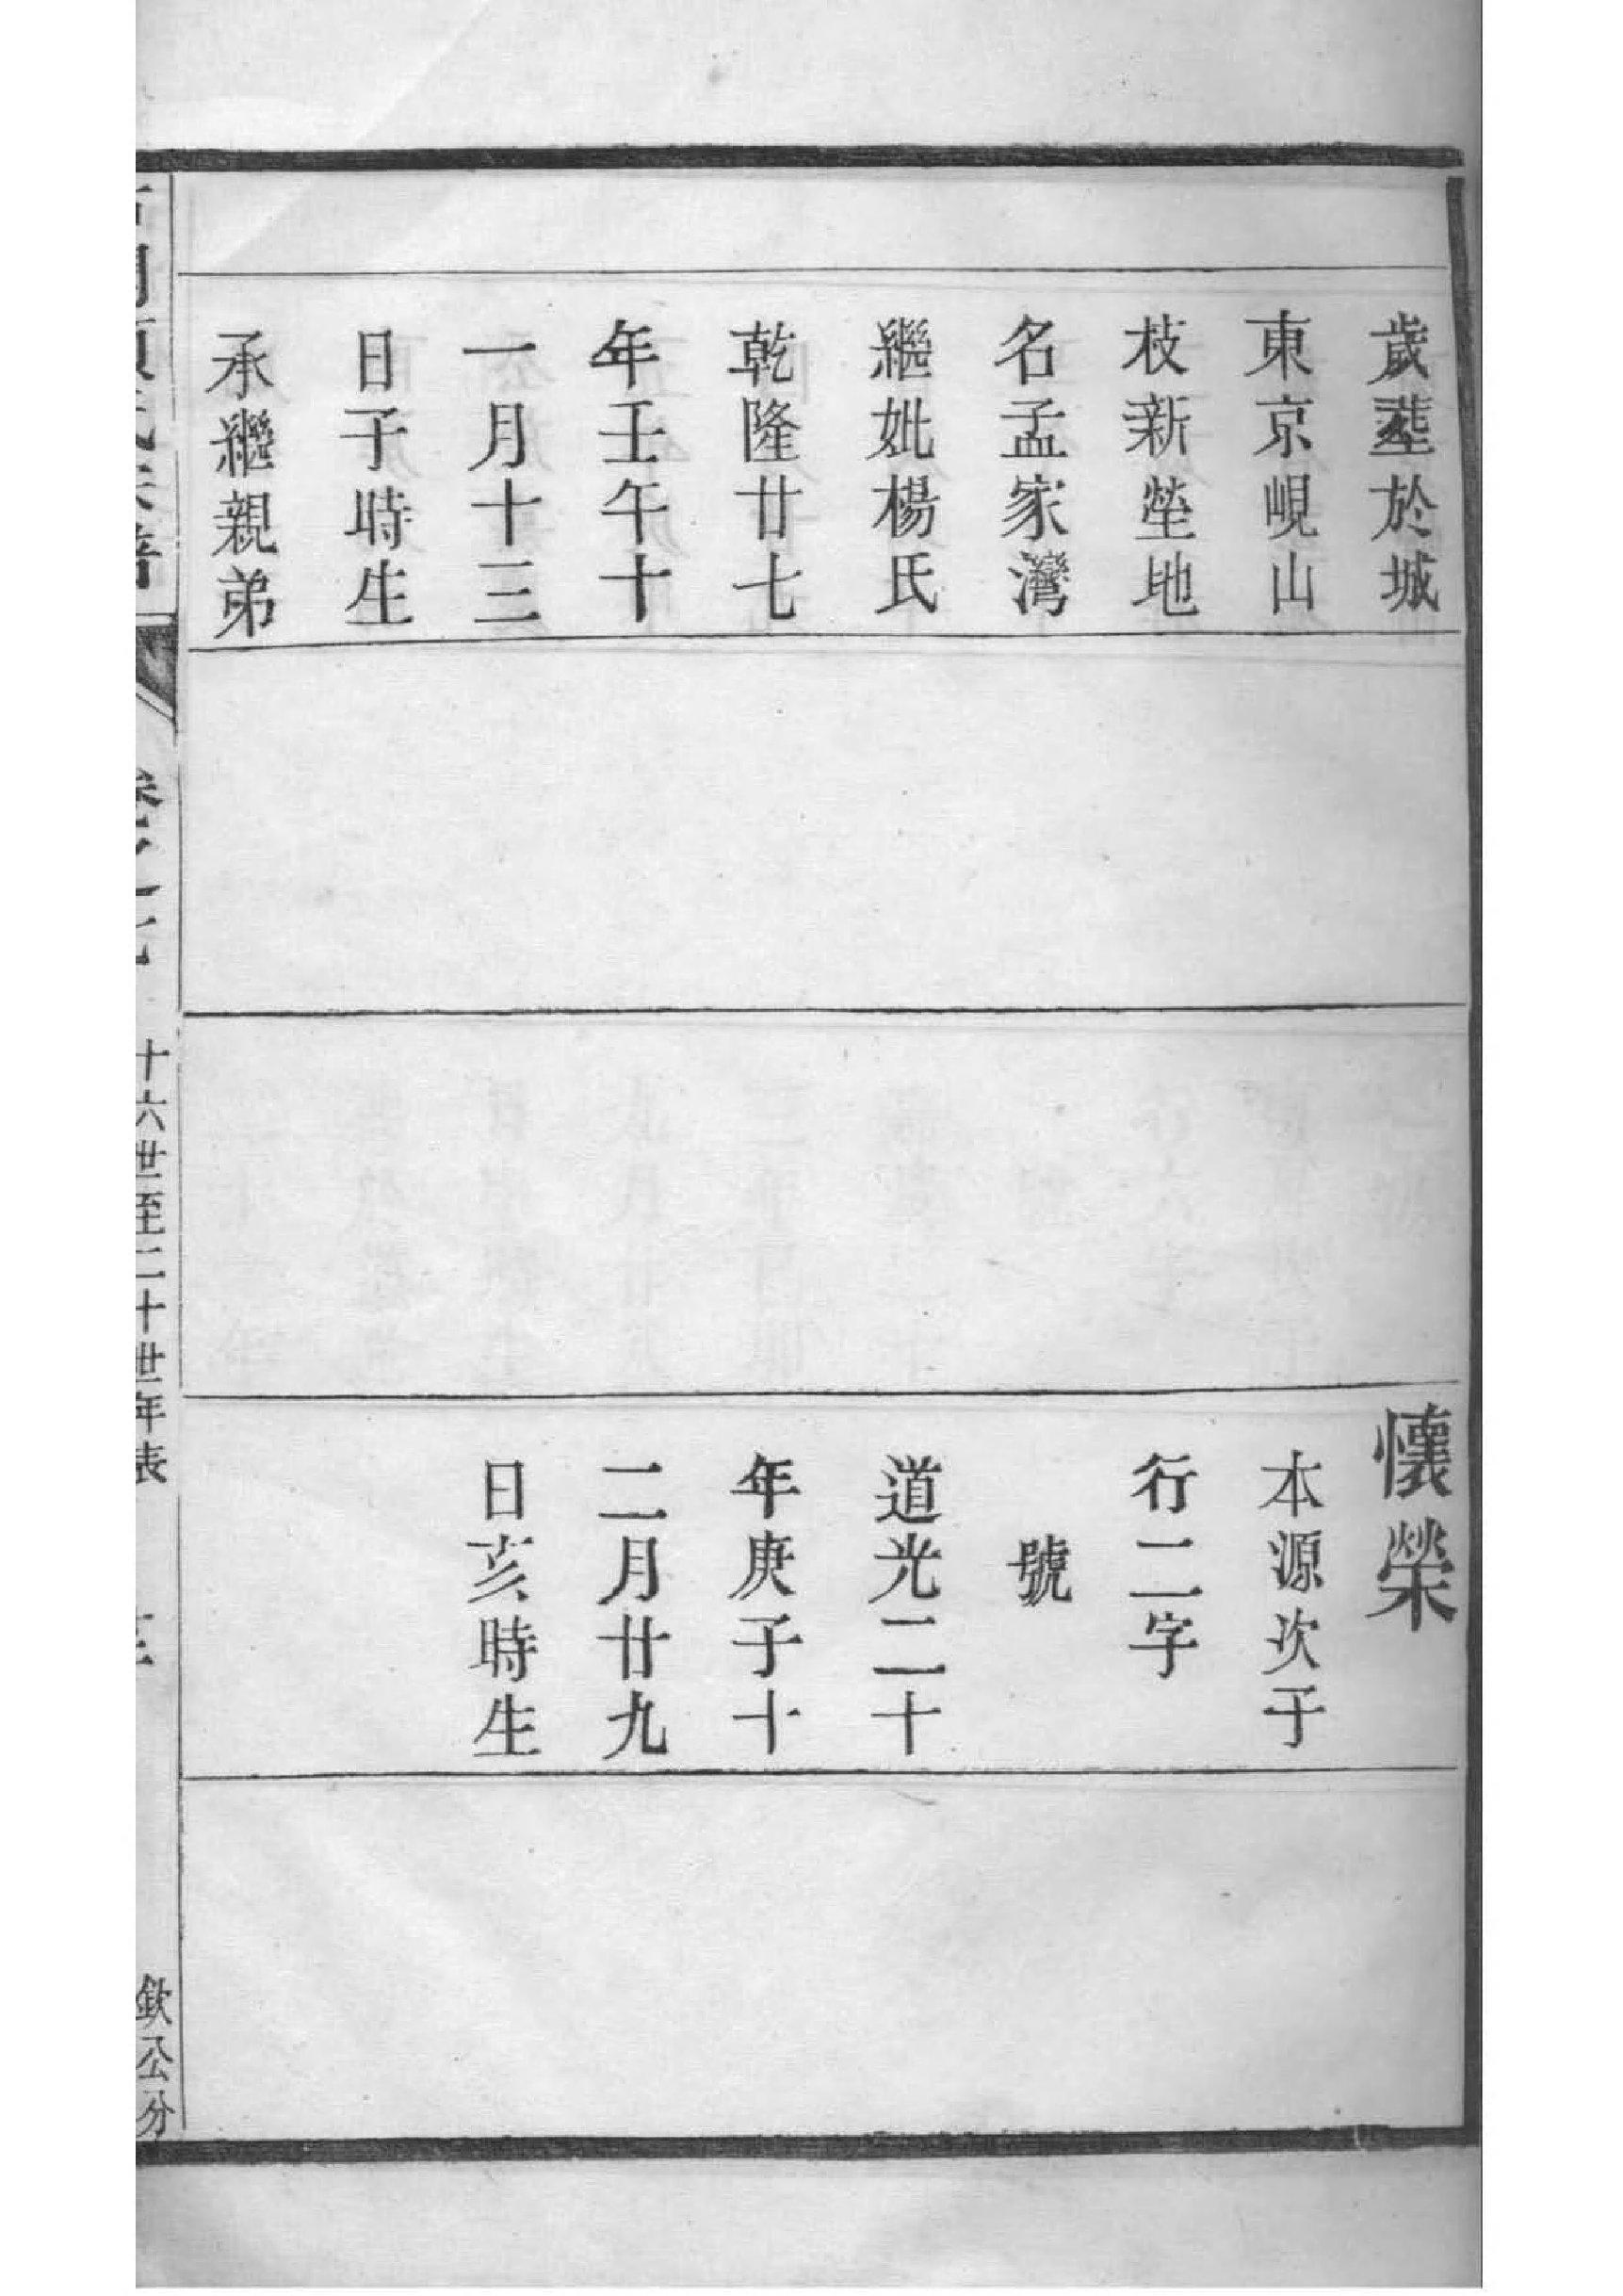 歲塟於城
東京峴山
枝新塋地
名孟家灣
繼妣楊氏
乾隆廿七
年壬午十
一月十三
日子時生
承繼親弟
懷榮
本源次子
行二字
號
道光二十
年庚子十
二月廿九
日亥時生
十六世至二十世年表
欽公分